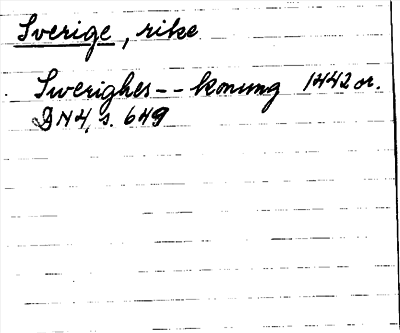 Sverige, rike
Swerighes -- konung 1442 or.
DN4, s. 649